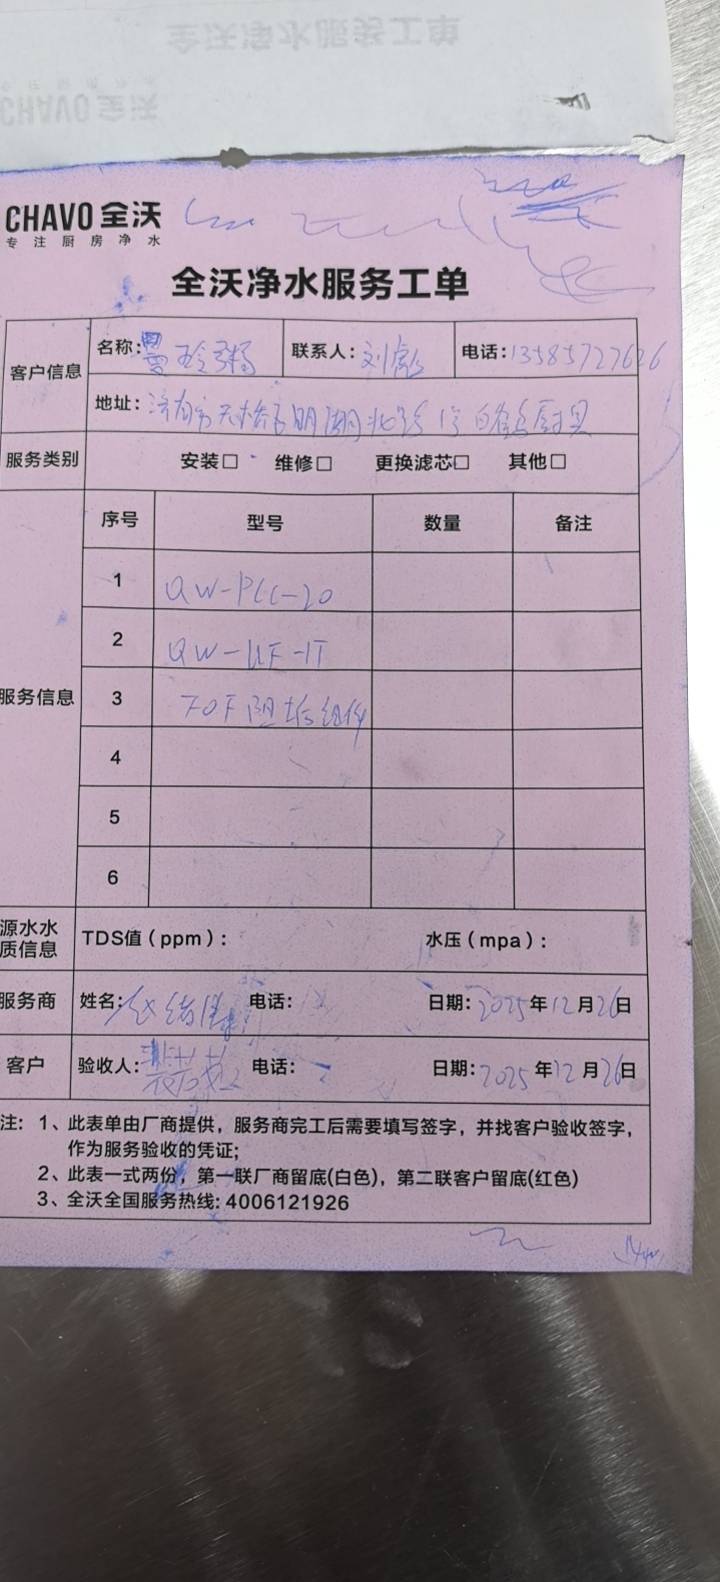 全沃净水服务工单
CHAVO 全沃
CHAVO 全沃
专注厨房净水
全沃净水服务工单
客户信息
名称:
联系人: 刘彪
电话: 13585727626
地址: 济南市天桥区明湖北路1号白鹤厨具
服务类别
安装□ 维修□ 更换滤芯□ 其他□
服务信息
序号 型号 数量 备注
1 QW-PCC-20
2 QW-UF-1T
3 TOF阻垢组件
4
5
6
源水水质信息
TDS值(ppm): 水压(mpa):
服务商 姓名: 电话: 日期: 2025年12月26日
客户 验收人: 电话: 日期: 2025年12月26日
注: 1、此表单由厂商提供，服务商完工后需要填写签字，并找客户验收签字，
作为服务验收的凭证;
2、此表一式两份，第一联厂商留底(白色)，第二联客户留底(红色)
3、全沃全国服务热线: 4006121926